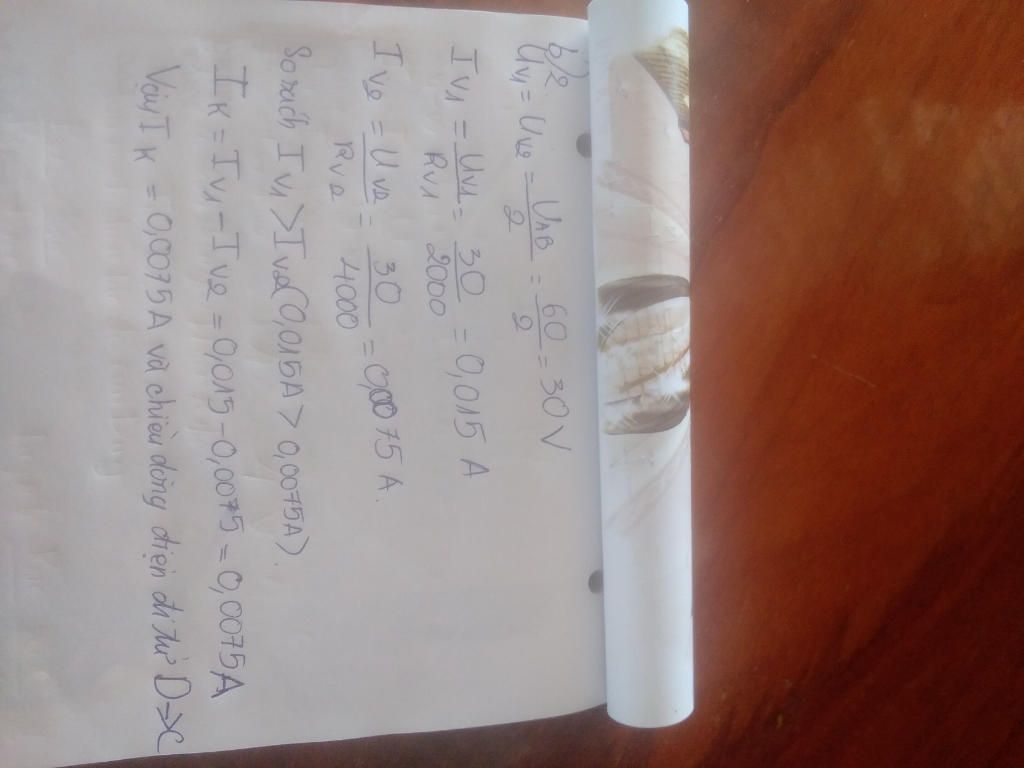 b)2.
UV1 = UV2 = UAB/2 = 60/2 = 30V
IV1 = UV1/RV1 = 30/2000 = 0,015 A
IV2 = UV2/RV2 = 30/4000 = 0,0075 A.
So sánh IV1 > IV2 (0,015A > 0,0075A).
IK = IV1 - IV2 = 0,015 - 0,0075 = 0,0075A
Vậy IK = 0,0075A và chiều dòng điện đi từ D→C